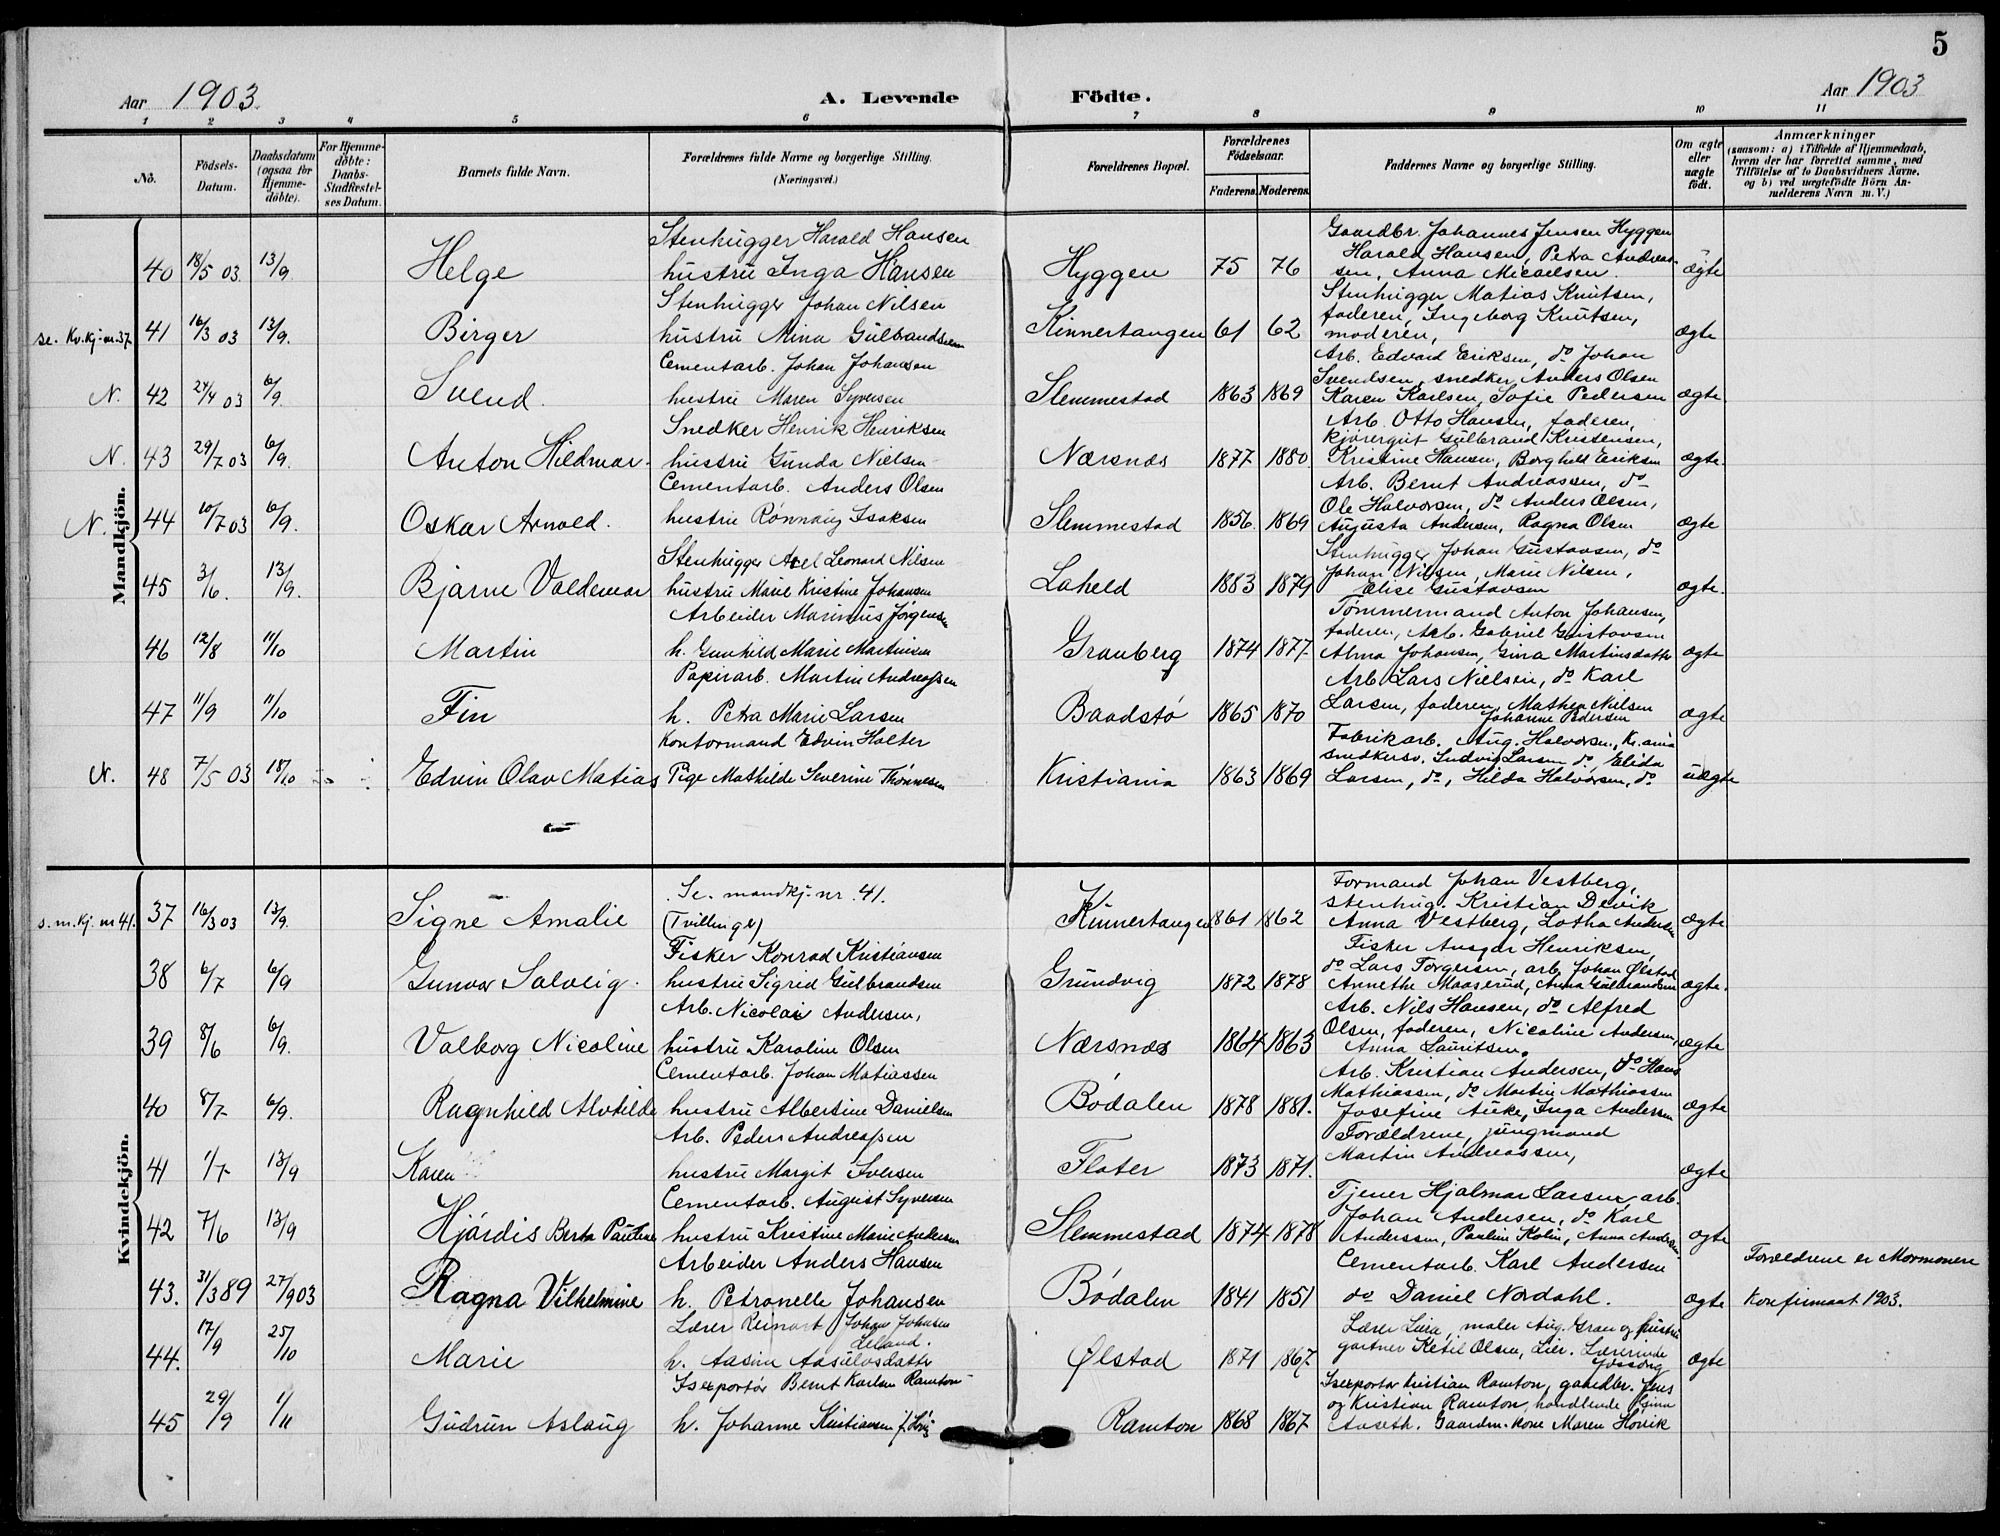 5
Aar 1903.
A. Levende
Födte.
Aar 1903
1 2 3 4 5 6 7 8 9 10 11
No.
Födsels-Datum.
Daabsdatum (ogsaa for Hjemme-döbte).
For Hjemme-döbte: Daabs-Stadfæstel-ses Datum.
Barnets fulde Navn.
Forældrenes fulde Navne og borgerlige Stilling.
(Næringsvei.)
Forældrenes Bopæl.
Forældrenes Födselsaar.
Faderens. Moderens.
Faddernes Navne og borgerlige Stilling.
Om ægte eller uægte födt.
Anmærkninger
(saasom: a) i Tilfælde af Hjemmedaab, hvem der har forrettet samme, med Tilföielse af to Daabsvidners Navne, og b) ved uægtefödte Börn Anmelderens Navn m. V.)
Mandkjön.
Stenhugger Harald Hansen
Gaardbr. Johannes Jensen Hyggen
40 18/5 03 13/9. Helge hustru Inga Hansen Hyggen 75 76 Harald Hansen, Petra Andreas-
sen, Anna Micaelsen. ægte
Stenhugger Johan Nilsen
Stenhugger Matias Knutsen,
se. Kv.kj. nr. 37. 41 16/3 03 13/9. Birger hustru Mina Gulbrandsen Kinnertangen 61 62 faderen, Ingeborg Knutsen,
moderen, ægte
Cementarb. Johan Johansen
Arb. Edvard Eriksen, do Johan
Svendsen, snedker Anders Olsen
N. 42 24/4 03 6/9. Svend. hustru Maren Syversen Slemmestad 1863 1869 Karen Karlsen, Sofie Pedersen ægte
Snedker Henrik Henriksen
Arb. Otto Hansen, faderen,
kjøregut Gulbrand Kristensen,
N. 43 29/7 03 6/9. Anton Hildmar. hustru Gunda Nielsen Nærsnes 1877 1880 Kristine Hansen, Borghild Eriksen ægte.
Cementarb. Anders Olsen
Arb. Bernt Andreassen, do
Ole Halvorsen, do Anders Olsen,
N. 44 10/7 03 6/9. Oskar Arnold. hustru Rønnaug Isaksen Slemmestad 1856. 1869 Augusta Andersen, Ragna Olsen ægte
Stenhugger Axel Leonard Nilsen
Stenhugger Johan Gustavsen, do
45 3/6. 13/9. Bjarne Valdemar hustru Marie Kristine Johansen Laheld 1883 1879 Johan Nilsen, Marie Nilsen,
Elise Gustavsen ægte.
Arbeider Marinius Jørgensen
Tømmermand Anton Johansen,
faderen, Arb. Gabriel Gustavsen
46 12/8 11/10 Martin h. Gunhild Marie Martinsen Granberg 1874 1877. Alma Johansen, Gina Martinsdatter ægte
Papirarb. Martin Andreassen
Arb. Lars Nielsen, do Karl
47 11/9 11/10 Fin h. Petra Marie Larsen Baadstø 1865 1870 Larsen, faderen, Mathea Nielsen
Johanne Pedersen ægte
Kontormand Edvin Holter
Fabrikarb. Aug. Halvorsen, Kr.ania
snedkersv. Ludvig Larsen do, Elida
N. 48 7/5 03 18/10 Edvin Olav Matias Pige Mathilde Severine Thønnesen Kristiania 1863 1869 Larsen, do, Hilda Halvorsen, do uægte
Kvindekjön.
Se. mandkj. nr. 41.
Formand Johan Vestberg,
stenhug. Kristian Devik
s. m. kj. nr 41. 37 16/3 03 13/9. Signe Amalie (Tvillinger) Kinnertangen 1861 1862 Anna Vestberg, Lotha Andersen ægte
Fisker Konrad Kristiansen
Fisker Ansgar Henriksen,
do Lars Torgersen, arb. Johan Ølstad
38 6/7 6/9 Gunvor Solveig. hustru Sigrid Gulbrandsen Grundvig 1872 1878 Annethe Maaserud, Anna Gulbrandsen ægte.
Arb. Nicolai Andersen,
Arb. Nils Hansen, do Alfred
39 8/6 6/9. Valborg Nicoline hustru Karoline Olsen Nærsnes 1864 1863 Olsen, faderen, Nicoline Andersen,
Anna Lauritsen. ægte
Cementarb. Johan Matiassen
Arb. Kristian Andersen, do Hans
Mathiassen, do Martin Mathiassen
40 8/7 6/9. Ragnhild Alvhilde hustru Albertine Danielsen Bødalen 1878 1881. Josefine Auke, Inga Andersen ægte
Arb. Peder Andreassen
Forældrene, jungmand
41 1/7 13/9 Karen hustru Margit Iversen Flater 1873 1871. Martin Andreassen, ægte
Cementarb. August Syversen
Tjener Hjalmar Larsen, arb.
Johan Andersen, do Karl
42 7/6 13/9 Hjördis Berta Pauline hustru Kristine Marie Andersen Slemmestad 1874 1878 Anderssen, Pauline Kolin, Anna Andersen ægte
Arbeider Anders Hansen
Cementarb. Karl Andersen
Forældrene er Mormonere
43. 31/3 89 27/9 03 Ragna Vilhelmine h. Petronelle Johansen Bødalen 1841 1851 do Daniel Nordahl. ægte Konfirmant 1903.
Lærer Reinart Johan Johnsen
Leland.
Lærer Liira, maler Aug. Gran og hustru
44. 17/9 25/10 Marie h. Aasine Aasulvsdatter Ølstad 1871 1867. gartner Ketil Olsen, Lier. Lærerinde
ægte
Isexportør Bernt Karlsen Ramton
Isexportør Kristian Ramton, gaardbr. Jens
og Kristian Ramton, handlende
45 29/9 1/11 Gudrun Aslaug h. Johanne Kristiansen Ramton 1868 1867 Aaseth. Gaardm. kone Maren Hovik